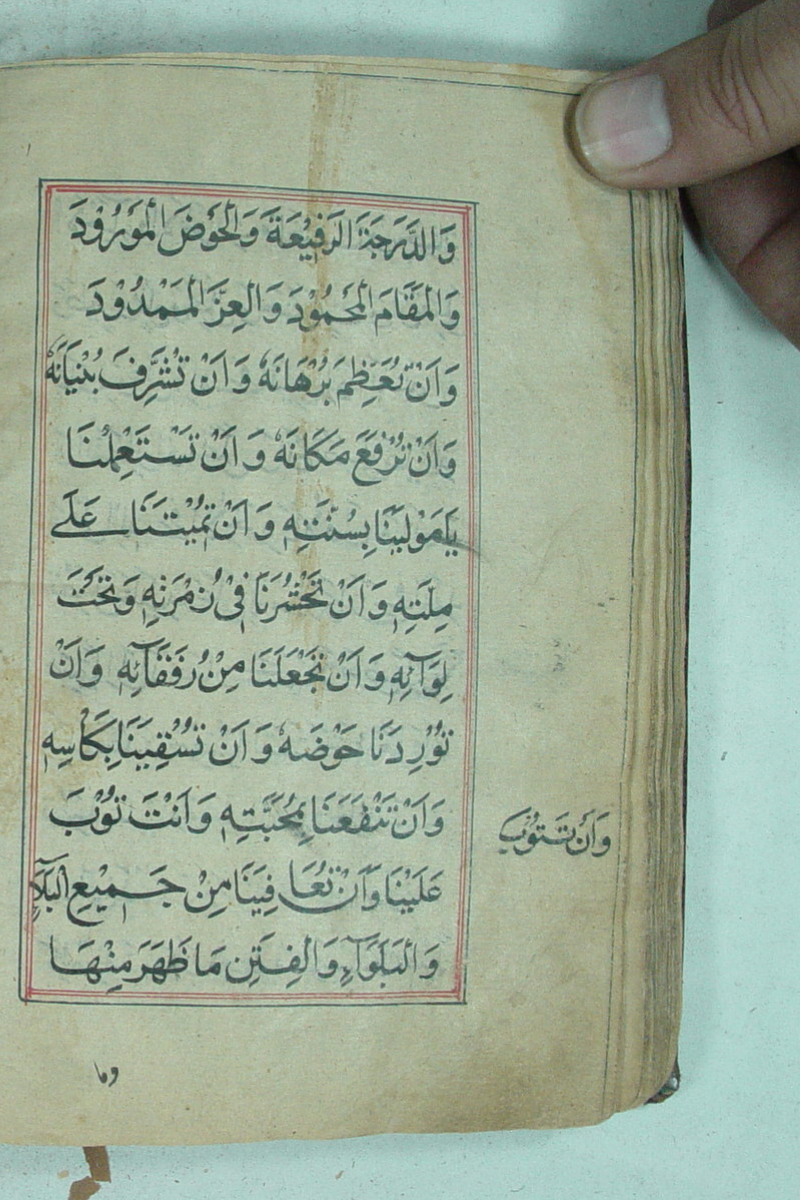 وَالدَّرَجَةَ الرَفِيْعَةَ وَالْحَوْضَ الْمَوْرُوْدَ
وَالْمَقَامَ الْمَحْمُوْدَ وَالْعِزَّ الْمَمْدُوْدَ
وَاَنْ تُعَظِّمَ بُرْهَانَهُ وَاَنْ تُشَرِّفَ بُنْيَانَهُ
وَاَنْ تَرْفَعَ مَكَانَهُ وَاَنْ تَسْتَعْمِلَنَا
يَا مَوْلٰينَا بِسُنَّتِهِ وَاَنْ تُمِيْتَنَا عَلَى
مِلَّتِهِ وَاَنْ تَحْشُرَنَا فِيْ زُمْرَتِهِ وَتَحْتَ
لِوَآئِهِ وَاَنْ تَجْعَلَنَا مِنْ رُفَقَآئِهِ وَاَنْ
تُوْرِدَنَا حَوْضَهُ وَاَنْ تَسْقِيَنَا بِكَاْسِهِ
وَاَنْ تَنْفَعَنَا بِمُحَبَّتِهِ وَاَنْتَ تُوْبَ
عَلَيْنَا وَاَنْ تُعَافِيَنَا مِنْ جَمِيْعِ الْبَلَآءِ
وَالْبَلْوَآءِ وَالْفِتَنِ مَا ظَهَرَ مِنْهَا
وَاَنْ تَتُوْبَ
وما